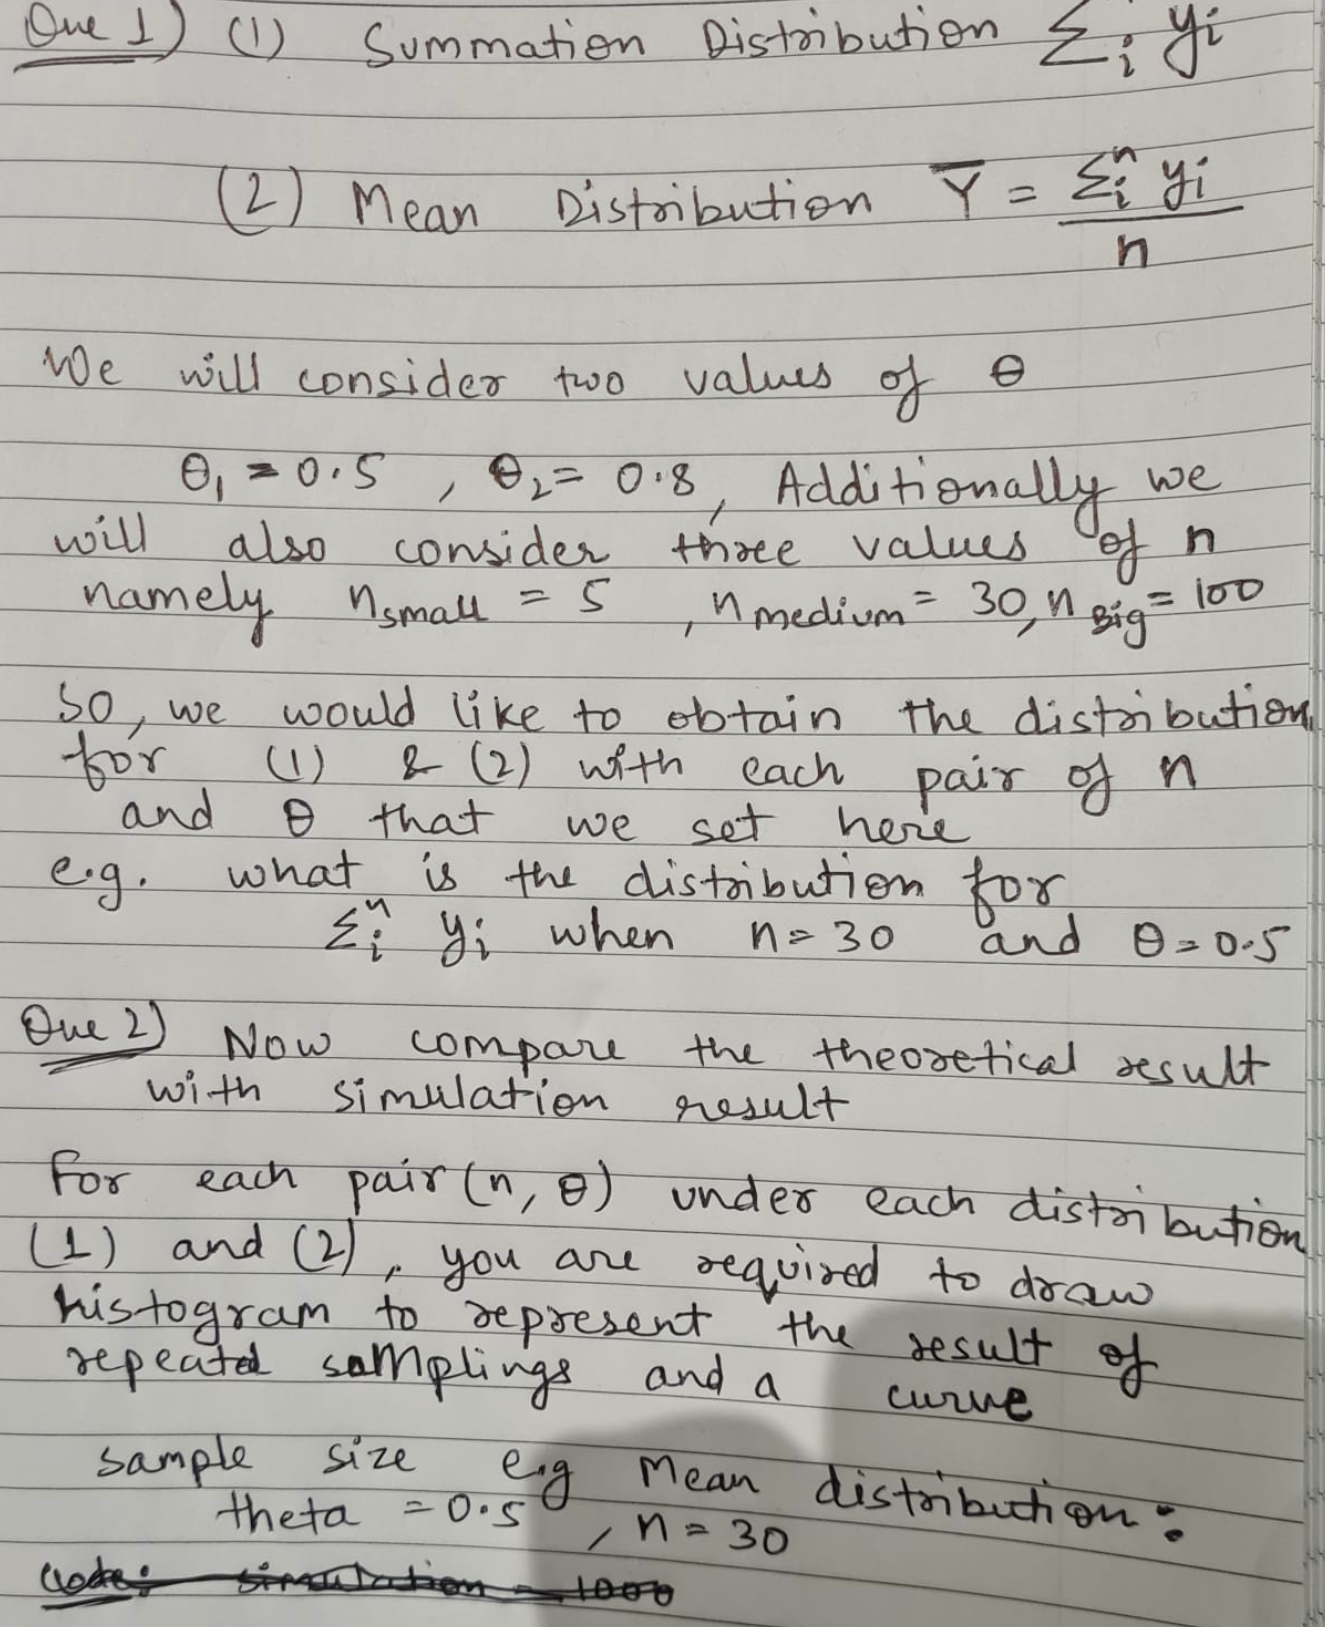 Que 1) (1) Summation Distribution Σi yi
(2) Mean Distribution Ȳ = Σiⁿ yi / n
We will consider two values of θ
θ₁ = 0.5 , θ₂ = 0.8, Additionally we
will also consider three values of n
namely nsmall = 5 , nmedium = 30, nBig = 100
So, we would like to obtain the distribution
for (1) & (2) with each pair of n
and θ that we set here
e.g. what is the distribution for
Σiⁿ yi when n = 30 and θ = 0.5
Que 2) Now compare the theoretical result
with simulation result
For each pair (n, θ) under each distribution
(1) and (2), you are required to draw
histogram to represent the result of
repeated samplings and a curve
sample size e.g Mean distribution:
theta = 0.5 , n = 30
Code: simulation = 1000